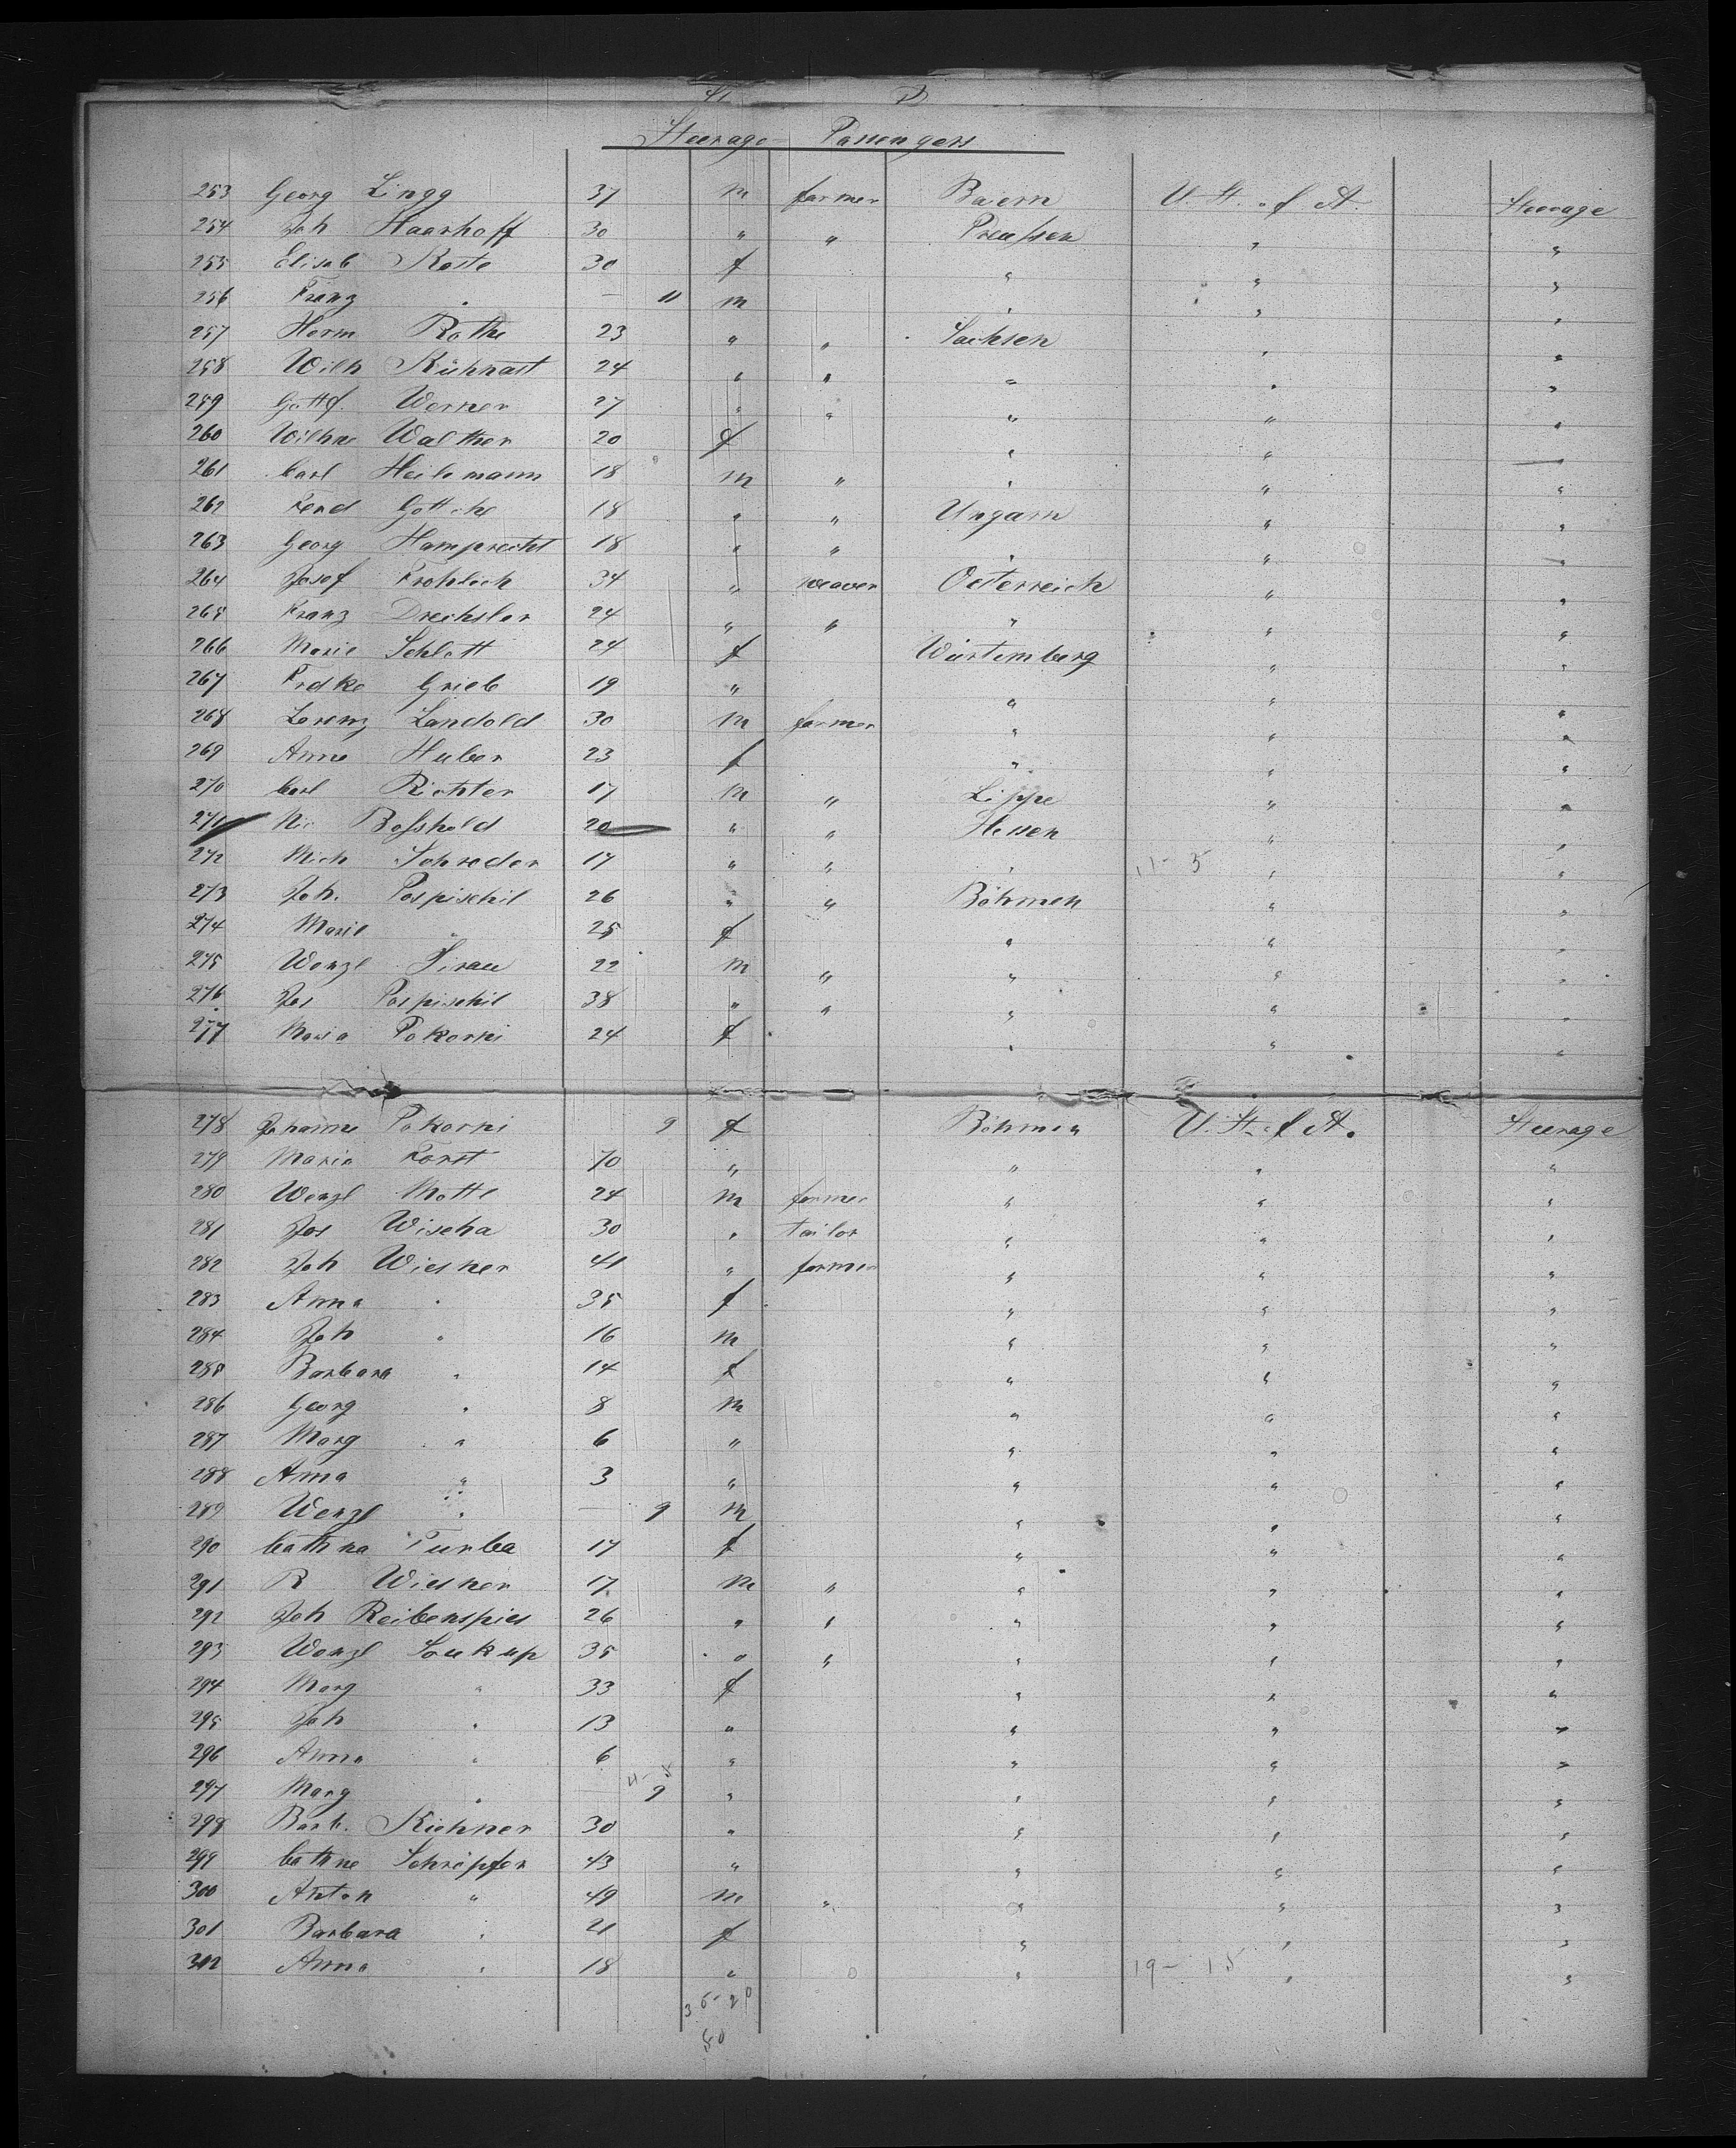 Steerage Passengers
253 Georg Lingg 37 m farmer Baiern U. St. of A. Steerage
254 Joh Haarhoff 30 " " Preussen " "
255 Elisab Roste 30 f " " "
256 Franz " — 11 m " " "
257 Herm Rothe 23 " " Sachsen " "
258 Wilh Kühnast 24 " " " " "
259 Gottf. Werner 27 " " " " "
260 Wilhne Walther 20 f " " "
261 Carl Heilemann 18 m " " " "
262 Ferd Gottche 18 " " Ungarn " "
263 Georg Hamprecht 18 " " " " "
264 Josef Frohlich 34 " weaver Oesterreich " "
265 Franz Drechsler 24 " " " " "
266 Marie Schlott 24 f Würtemberg " "
267 Frdke Grieb 19 " " " "
268 Lorenz Landold 30 m farmer " " "
269 Anna Huber 23 f " " "
270 Carl Richter 17 m " Lippe " "
271 Nic Bosshold 20 " " Hessen " "
272 Mich Schroder 17 " " " 11 - 5 " "
273 Joh. Pospischil 26 " " Böhmen " "
274 Marie " 25 f " " "
275 Wenzl Jirau 22 m " " " "
276 Jos Pospischil 38 " " " " "
277 Maria Pokorni 24 f " " "
278 Johanna Pokorni 9 f Böhmen U. St. of A. Steerage
279 Maria Forst 70 " " " "
280 Wenzl Mottl 24 m farmer " " "
281 Jos Wischa 30 " tailor " " "
282 Joh Wiesner 41 " farmer " " "
283 Anna " 35 f " " "
284 Joh " 16 m " " "
285 Barbara " 14 f " " "
286 Georg " 8 m " " "
287 Marg " 6 " " " "
288 Anna " 3 " " " "
289 Wenzl " — 9 m " " "
290 Cathna Turba 17 f " " "
291 R Wiesner 17 m " " " "
292 Joh Reibenspies 26 " " " " "
293 Wenzl Soukup 35 " " " " "
294 Marg " 33 f " " "
295 Joh " 13 " " " "
296 Anna " 6 " " " "
297 Marg " — 9 " " " "
298 Barb. Kichner 30 " " " "
299 Cathne Schröpfer 43 " " " "
300 Anton " 49 m " " " "
301 Barbara " 21 f " " "
302 Anna " 18 " " 19 - 15 " "
50